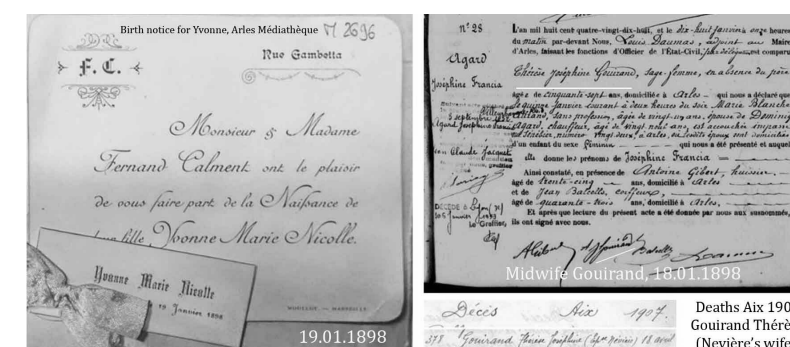 Birth notice for Yvonne, Arles Médiathèque
M 2696
Rue Gambetta
F. C.
Monsieur & Madame
Fernand Calment ont le plaisir
de vous faire part de la Naissance de
leur fille Yvonne Marie Nicolle.
Yvonne Marie Nicolle
19 Janvier 1898
MARSEILLE
19.01.1898
n° 28
Agard
Joséphine Francia
L'an mil huit cent quatre-vingt-dix-huit, et le dix-huit janvier à onze heures
du matin par-devant Nous, Louis Daumas, adjoint au Maire
d'Arles, faisant les fonctions d'Officier de l'Etat-Civil, est comparu
Thérèse Joséphine Gouirand, sage-femme, en absence du père
âgée de cinquante-sept ans, domiciliée à Arles qui nous a déclaré que
le quinze Janvier courant à deux heures du soir Marie Blanche
sans profession, âgée de vingt-un ans, épouse de Dominique
Agard, chauffeur, âgé de vingt neuf ans, est accouchée
numéro vingt deux, à Arles,
d'un enfant du sexe féminin qui nous a été présenté et auquel
elle donne les prénoms de Joséphine Francia
Ainsi constaté, en présence de Antoine Gibert, huissier,
âgé de trente-cinq ans, domicilié à Arles
et de Jean Balcells, coiffeur,
âgé de quarante-trois ans, domicilié à Arles,
Et après que lecture du présent acte a été donnée par nous aux susnommés,
ils ont signé avec nous.
Claude Jacquet
DÉCÉDÉE à Lyon
Le Greffier,
Midwife Gouirand, 18.01.1898
Décès Aix 1907.
378 Gouirand Thérèse Joséphine 18 avril
Deaths Aix 190
Gouirand Thérè
(Nevière's wife